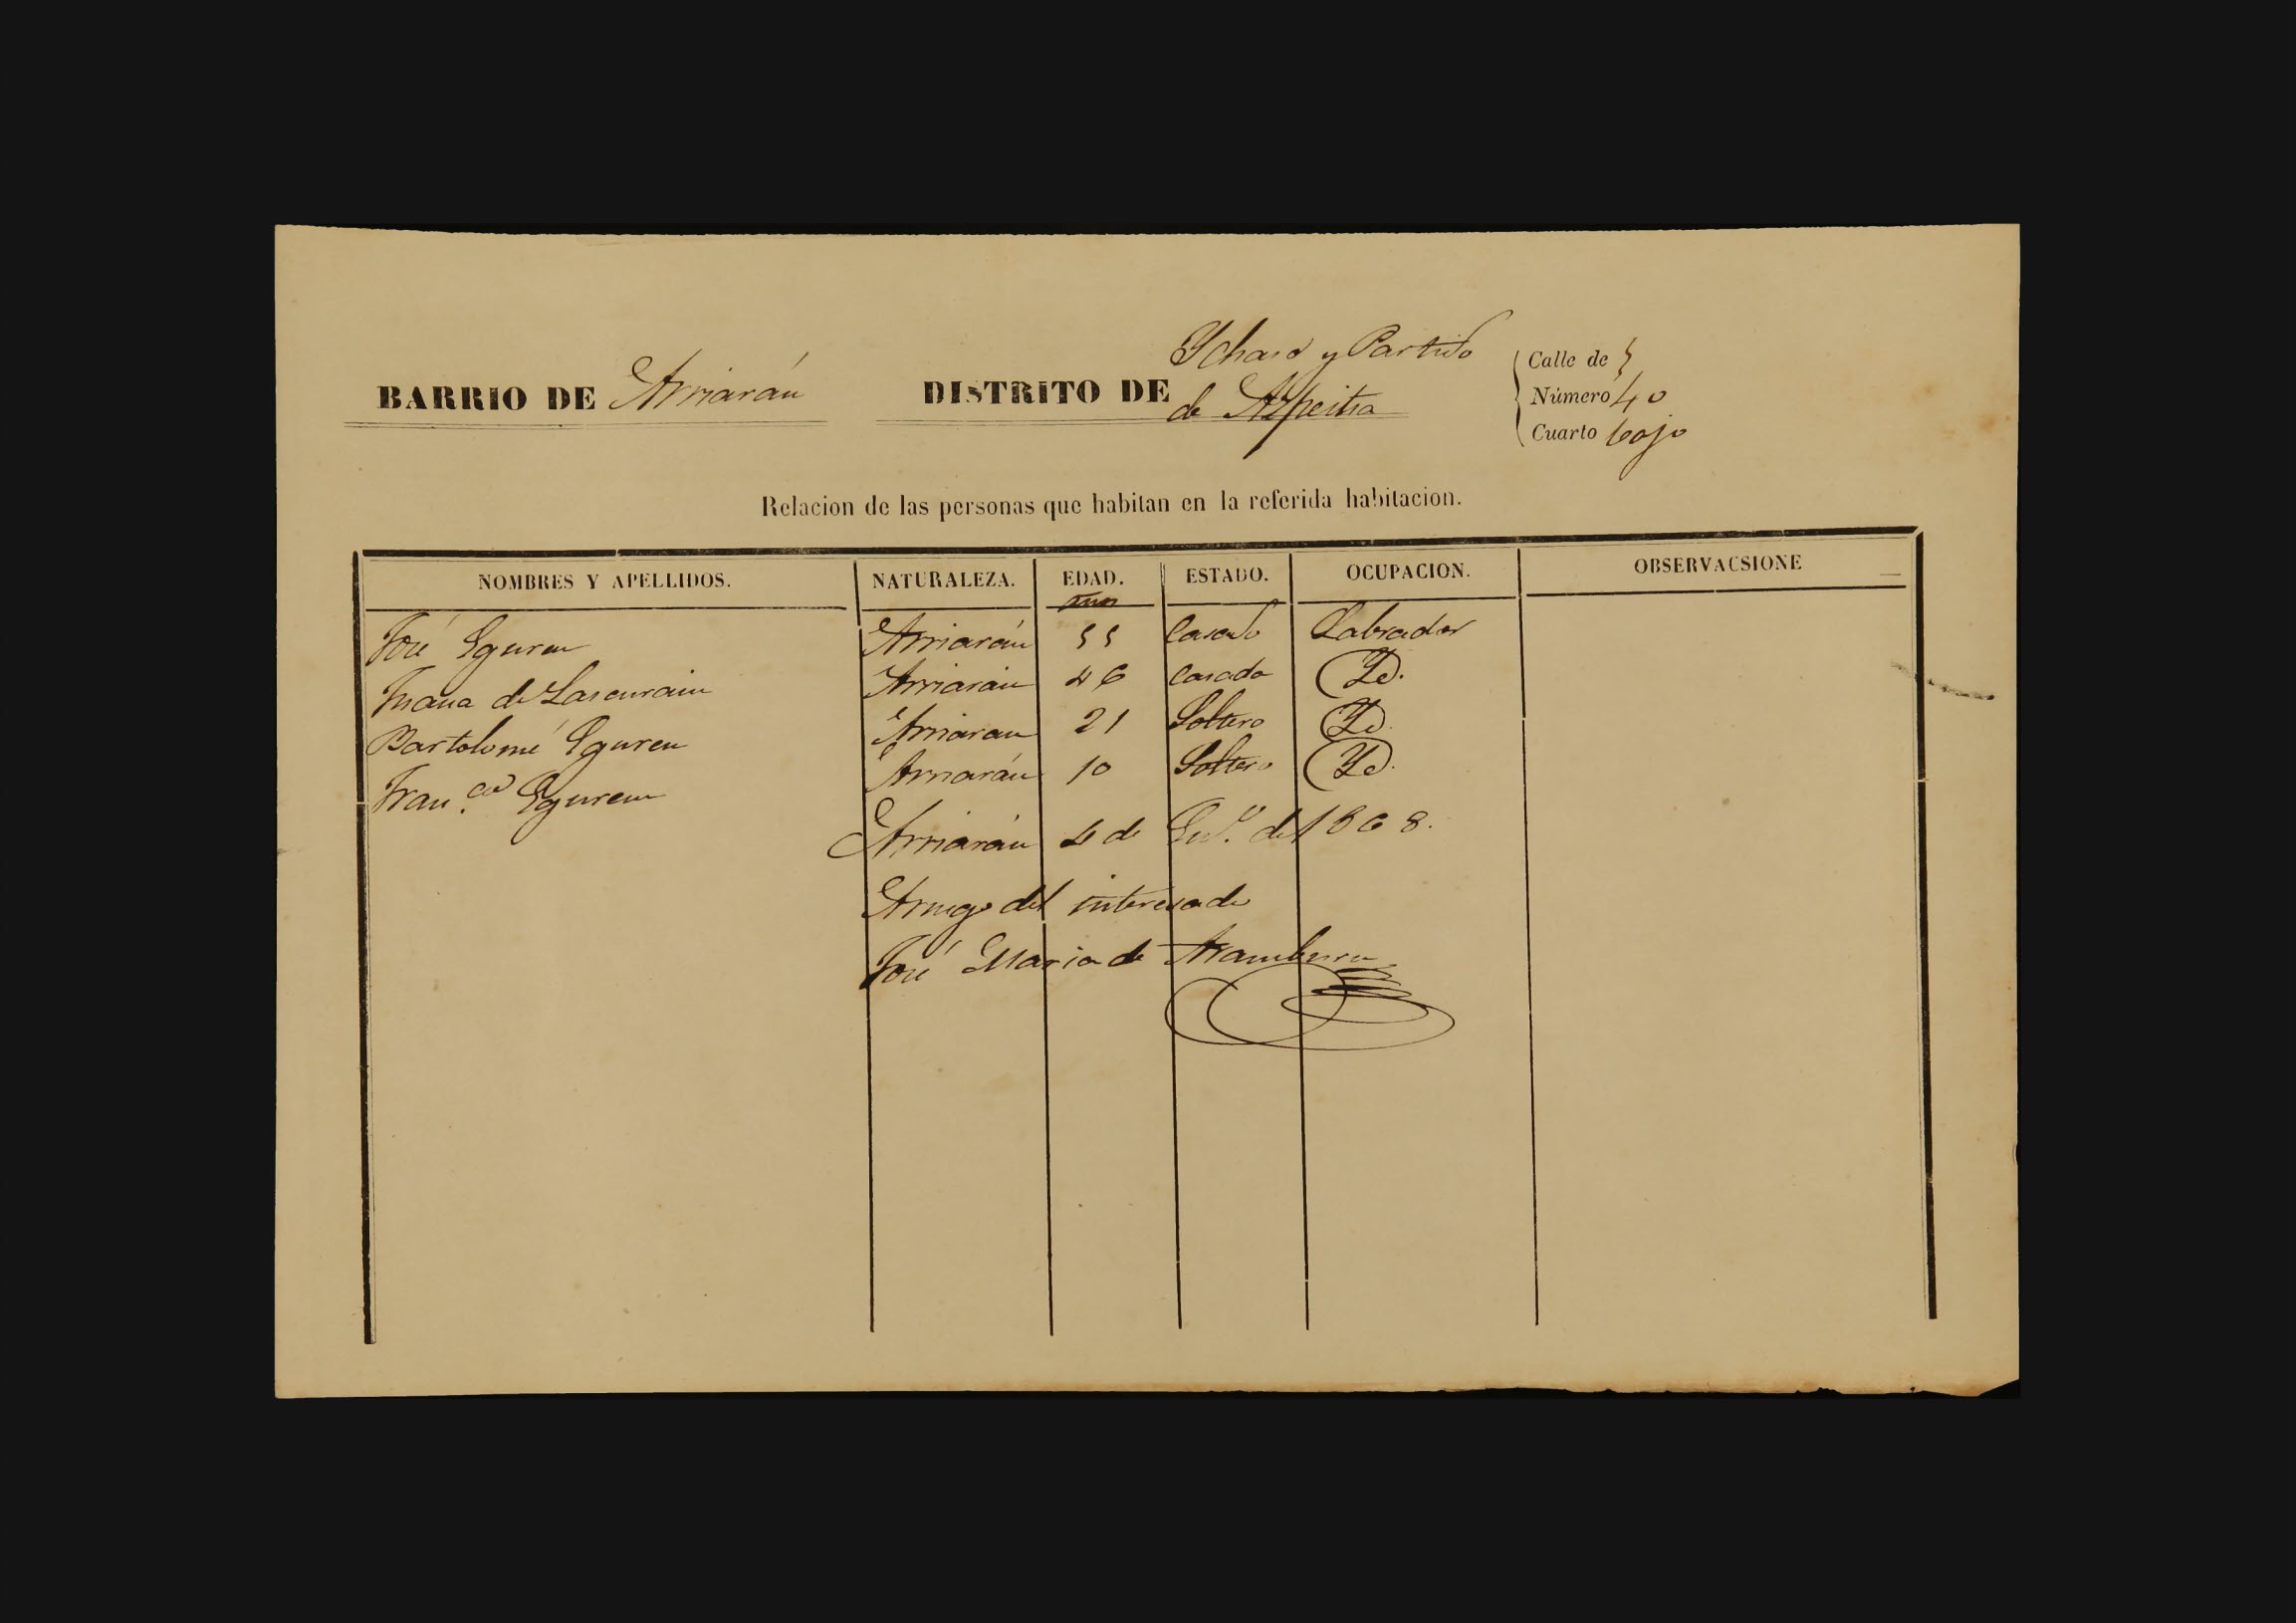 BARRIO DE Arriarán
DISTRITO DE Ychaso y Partido
de Azpeitia
Calle de 5
Número 40
Cuarto bajo
Relacion de las personas que habitan en la referida habitacion.
NOMBRES Y APELLIDOS. NATURALEZA. EDAD. ESTADO. OCUPACION. OBSERVACSIONE
años
José Eguren Arriarán 55 Casado Labrador
Juana de Lascurain Arriarán 46 Casada Yd.
Bartolomé Eguren Arriaran 21 Soltero Yd.
Fran.co Eguren Arriarán 10 Soltero Yd.
Arriarán 4 de En.o del 1868.
Arruego del interesado
José Maria de Aramburu